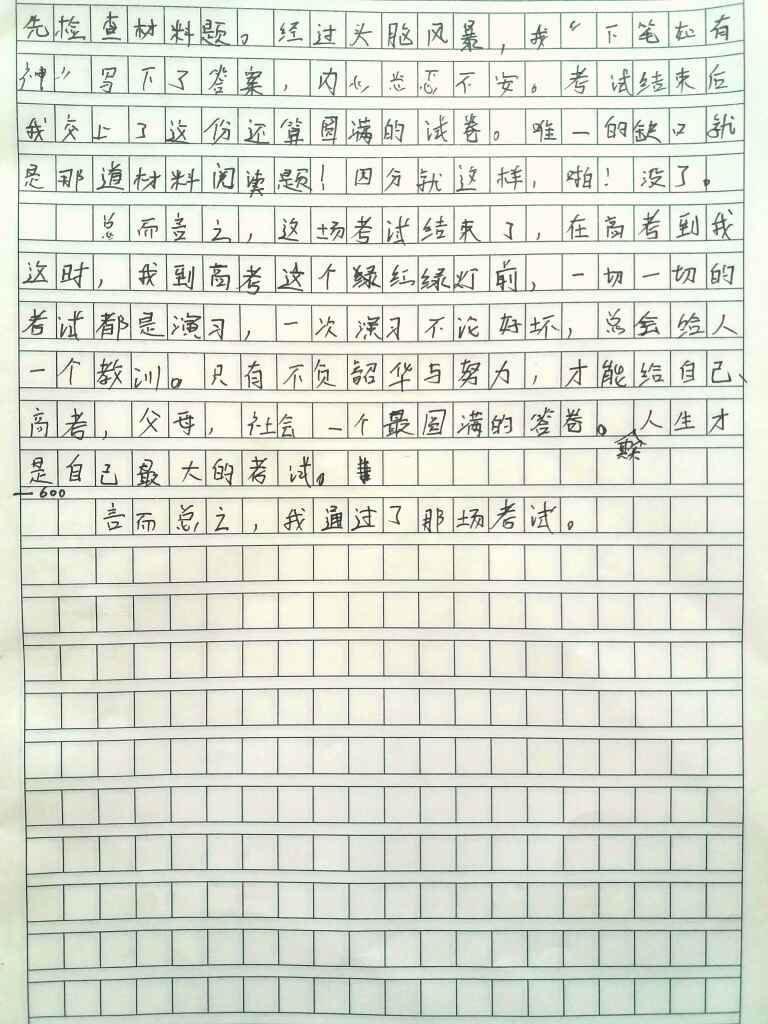 先检查材料题。经过头脑风暴，我“下笔如有
神”写下了答案，内心忐忑不安。考试结束后
我交上了这份还算圆满的试卷。唯一的缺口就
是那道材料阅读题！四分就这样，啪！没了。
总而言之，这场考试结束了，在高考到我
这时，我到高考这个绿红绿灯前，一切一切的
考试都是演习，一次演习不论好坏，总会给人
一个教训。只有不负韶华与努力，才能给自己、
高考，父母，社会一个最圆满的答卷。人生才
是自己最大的考试。
—600
言而总之，我通过了那场考试。